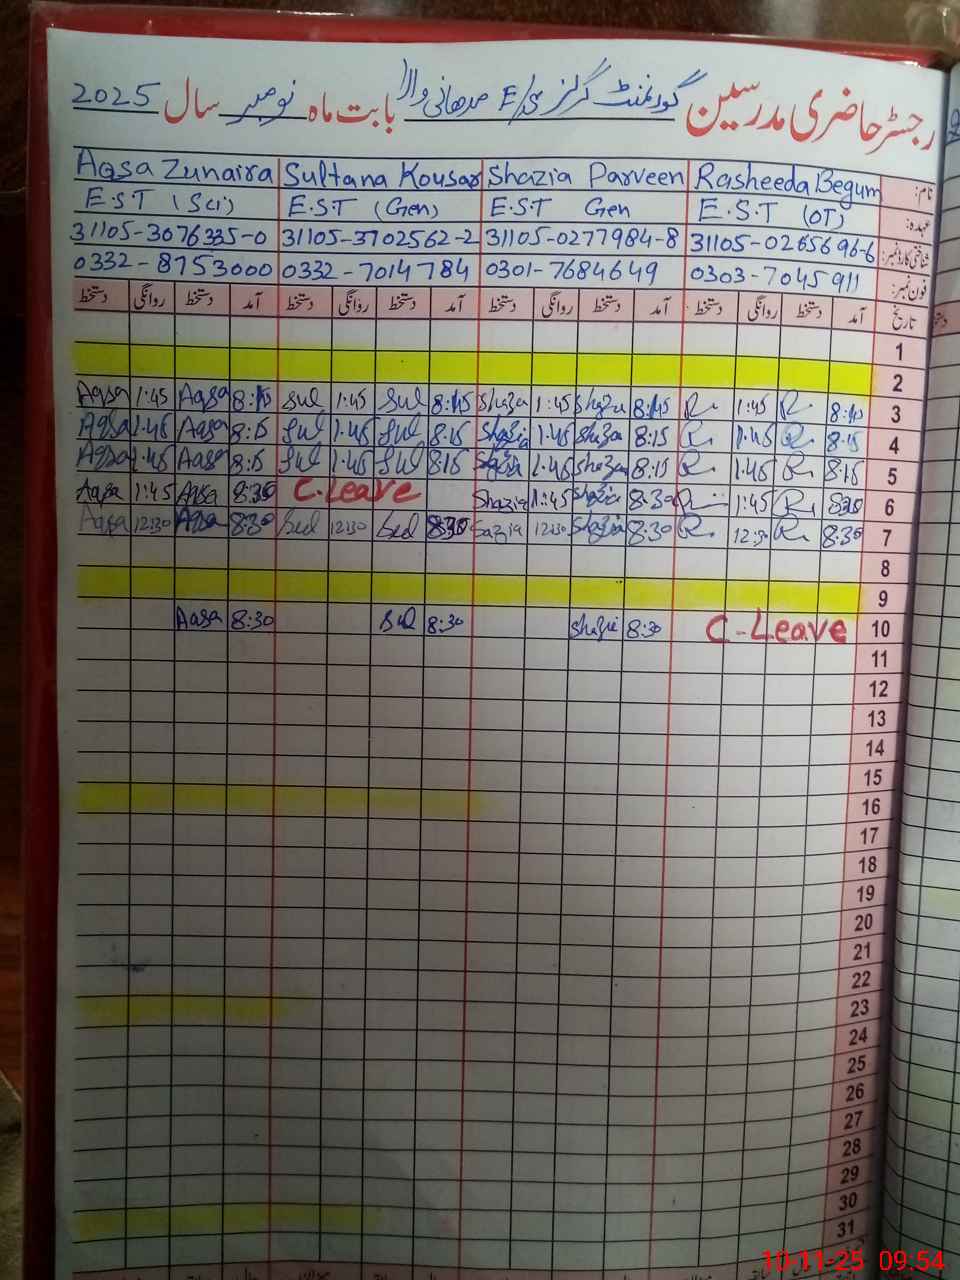 رجسٹر حاضری مدرسین گورنمنٹ گرلز E/S بابت ماہ نومبر سال 2025
نام: Rasheeda Begum Shazia Parveen Sultana Kousar Aqsa Zunaira
عہدہ: E.S.T (OT) E.S.T Gen E.S.T (Gen) E.S.T (Sci)
شناختی کارڈ نمبر: 31105-0265696-6 31105-0277984-8 31105-3702562-2 31105-3076335-0
فون نمبر: 0303-7045911 0301-7684649 0332-7014784 0332-8753000
تاریخ آمد دستخط روانگی دستخط آمد دستخط روانگی دستخط آمد دستخط روانگی دستخط آمد دستخط روانگی دستخط
1
2
3 8:15 R 1:45 R 8:15 Shazia 1:45 Shazia 8:15 Sul 1:45 Sul 8:15 Aqsa 1:45 Aqsa
4 8:15 R 1:45 R 8:15 Shazia 1:45 Shazia 8:15 Sul 1:45 Sul 8:15 Aqsa 1:45 Aqsa
5 8:15 R 1:45 R 8:15 Shazia 1:45 Shazia 8:15 Sul 1:45 Sul 8:15 Aqsa 1:45 Aqsa
6 8:30 R 1:45 R 8:30 Shazia 1:45 Shazia C.Leave 8:30 Aqsa 1:45 Aqsa
7 8:30 R 12:30 R 8:30 Shazia 12:30 Sazia 8:30 Sul 12:30 Sul 8:30 Aqsa 12:30 Aqsa
8
9
10 C-Leave 8:30 Shazia 8:30 Sul 8:30 Aqsa
11
12
13
14
15
16
17
18
19
20
21
22
23
24
25
26
27
28
29
30
31
10-11-25 09:54